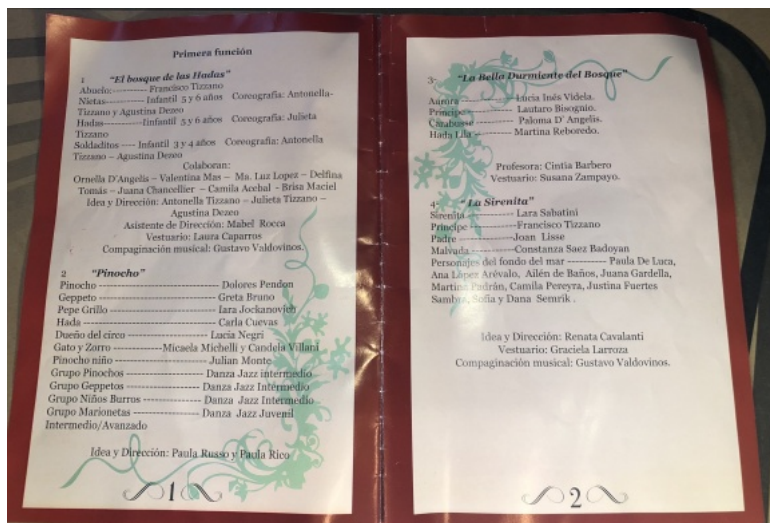 Primera función
1 "El bosque de las Hadas"
Abuelo:---------- Francisco Tizzano
Nietas----------- Infantil 5 y 6 años Coreografia: Antonella-
Tizzano y Agustina Dezeo
Hadas -----------Iinfantil 5 y 6 años Coreografia: Julieta
Tizzano
Soldaditos ---- Infantil 3 y 4 años Coreografia: Antonella
Tizzano – Agustina Dezeo
Colaboran:
Ornella D'Angelis – Valentina Mas – Ma. Luz Lopez – Delfina
Tomás – Juana Chancellier – Camila Acebal - Brisa Maciel
Idea y Dirección: Antonella Tizzano – Julieta Tizzano –
Agustina Dezeo
Asistente de Dirección: Mabel Rocca
Vestuario: Laura Caparros
Compaginación musical: Gustavo Valdovinos.
2 "Pinocho"
Pinocho ------------------------------ Dolores Pendon
Geppeto ------------------------------ Greta Bruno
Pepe Grillo ---------------------------- Iara Jockanovich
Hada ---------------------------------- Carla Cuevas
Dueño del circo ---------------------- Lucia Negri
Gato y Zorro ----------------Micaela Michelli y Candela Villani
Pinocho niño ------------------------ Julian Monte
Grupo Pinochos -------------------- Danza Jazz intermedio
Grupo Geppetos -------------------- Danza Jazz Intermedio
Grupo Niños Burros ----------------- Danza Jazz Intermedio
Grupo Marionetas ----------------- Danza Jazz Juvenil
Intermedio/Avanzado
Idea y Dirección: Paula Russo y Paula Rico
1
3- "La Bella Durmiente del Bosque"
Aurora -------------Lucia Inés Videla.
Príncipe ------------ Lautaro Bisognio.
Carabusse ---------- Paloma D' Angelis.
Hada Lila ---------- Martina Reboredo.
Profesora: Cintia Barbero
Vestuario: Susana Zampayo.
4- "La Sirenita"
Sirenita ------------- Lara Sabatini
Príncipe -------------Francisco Tizzano
Padre ---------------Joan Lisse
Malvada -------------Constanza Saez Badoyan
Personajes del fondo del mar ---------- Paula De Luca,
Ana López Arévalo, Ailén de Baños, Juana Gardella,
Martina Padrán, Camila Pereyra, Justina Fuertes
Sambra, Sofia y Dana Semrik .
Idea y Dirección: Renata Cavalanti
Vestuario: Graciela Larroza
Compaginación musical: Gustavo Valdovinos.
2